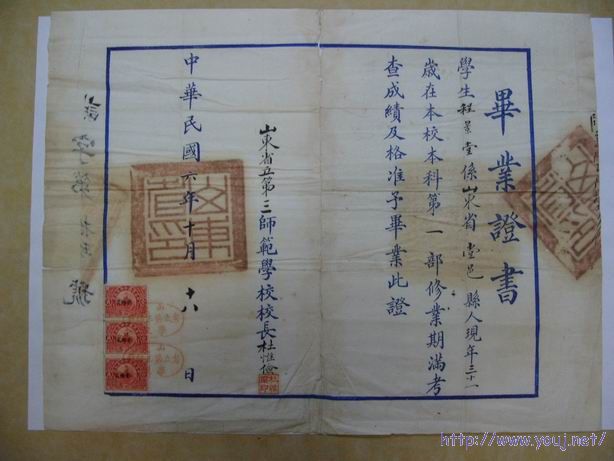 畢業證書
學生程景堂係山東省堂邑縣人現年三十一
歲在本校本科第一部修業期滿考
查成績及格准予畢業此證
山東省立第三師範學校校長杜惟儉
中華民國六年十月十八日
字第 號
http://www.youj.net/